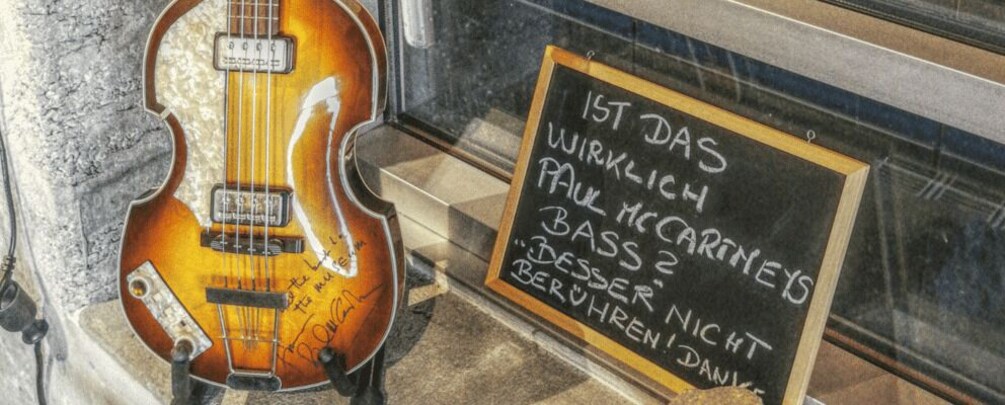 the museum
IST DAS
WIRKLICH
PAUL MCCARTNEYS
BASS?
"BESSER" NICHT
BERÜHREN! DANKE